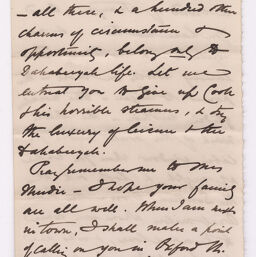 — all these, & a hundred other
charms of circumstance &
opportunity, belong only to
Dahabeeyah life. Let me
entreat you to give up Cook
& his horrible steamers, & try
the luxury of leisure & the
Dahabeeyah.
Pray remember me to Mrs
Mudie — I hope your family
are all well. When I am next
in town, I shall make a point
of calling on you in Oxford St.